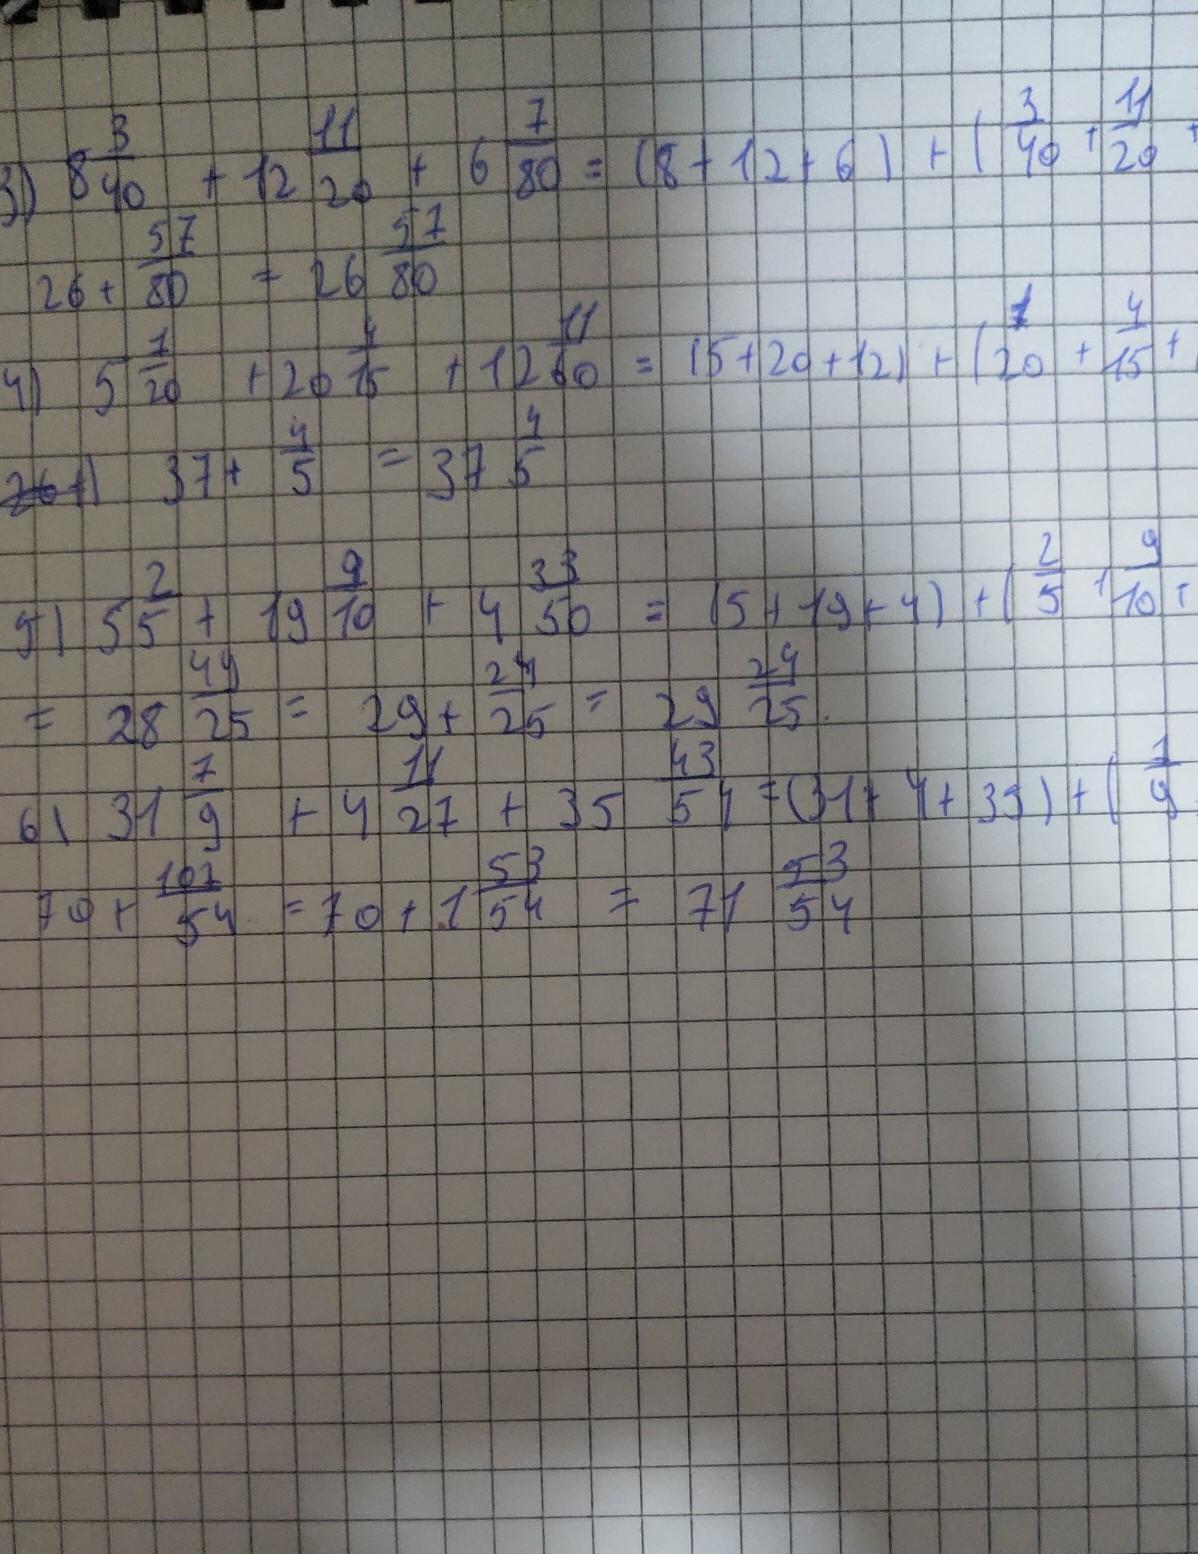 3) 8 3/40 + 12 11/20 + 6 7/80 = (8 + 12 + 6) + (3/40 + 11/20 +
26 + 57/80 = 26 57/80
4) 5 1/20 + 20 4/15 + 12 11/60 = (5 + 20 + 12) + (1/20 + 4/15 +
37 + 4/5 = 37 4/5
5) 5 2/5 + 19 9/10 + 4 33/50 = (5 + 19 + 4) + (2/5 + 9/10 +
= 28 49/25 = 29 + 24/25 = 29 24/25.
6) 31 7/9 + 4 11/27 + 35 43/54 = (31 + 4 + 35) + (7/9
70 + 107/54 = 70 + 1 53/54 = 71 53/54